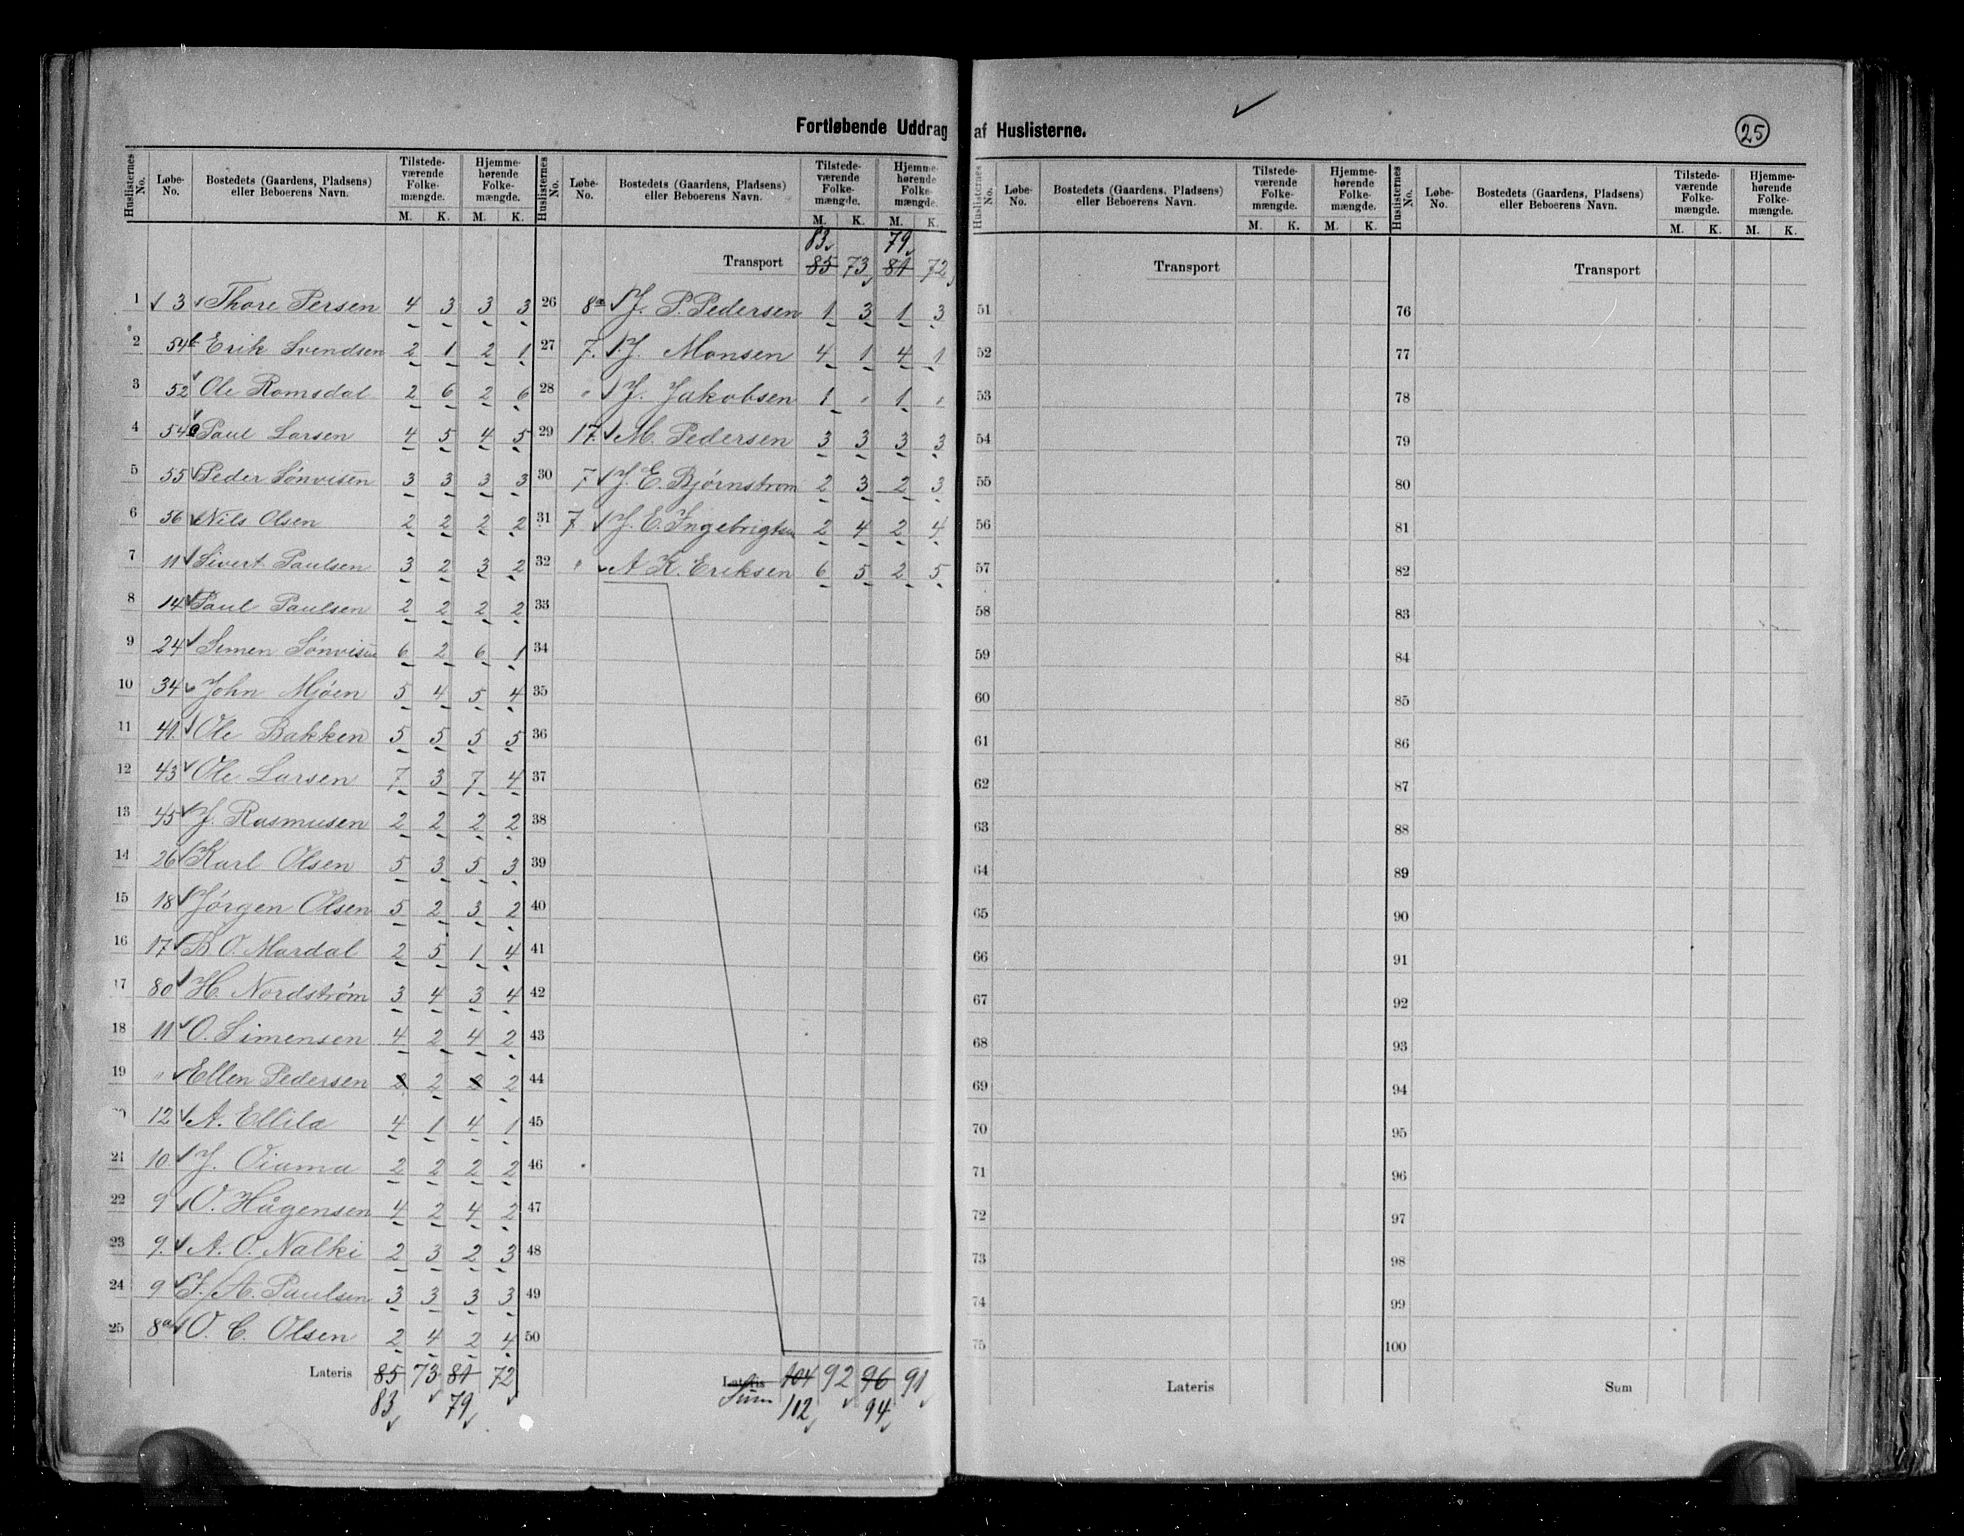 Fortløbende Uddrag af Huslisterne.
25
Huslisternes No. Løbe-No. Bostedets (Gaardens, Pladsens) eller Beboerens Navn. Tilstedeværende Folkemængde. M. K. Hjemmehørende Folkemængde. M. K.
1 3 Thore Persen 4 3 3 3
2 54 Erik Svendsen 2 1 2 1
3 52 Ole Romsdal 2 6 2 6
4 54 Paul Larsen 4 5 4 5
5 55 Peder Sønvisen 3 3 3 3
6 56 Nils Olsen 2 2 2 2
7 11 Sivert Paulsen 3 2 3 2
8 14 Paul Paulsen 2 2 2 2
9 24 Simen Sønvisen 6 2 6 1
10 34 John Mjöen 5 4 5 4
11 41. Ole Bakken 5 5 5 5
12 43 Ole Larsen 7 3 7 4
13 45 J. Rasmusen 2 2 2 2
14 26 Karl Olsen 5 3 5 3
15 18 Jørgen Olsen 5 2 3 2
16 17 B. O. Mardal 2 5 1 4
17 80 H. Nordstrøm 3 4 3 4
18 11 O. Simensen 4 2 4 2
19 " Ellen Pedersen 2 2 2 2
20 12 A. Ellila 4 1 4 1
21 10. J. Oiama 2 2 2 2
22 9 O. Hågensen 4 2 4 2
23 9. A. O. Nalki 2 3 2 3
24 9 J. A. Paulsen 3 3 3 3
25 8a O. C. Olsen 2 4 2 4
Lateris 85 73 81 72
83 79
Huslisternes No. Løbe-No. Bostedets (Gaardens, Pladsens) eller Beboerens Navn. Tilstedeværende Folkemængde. M. K. Hjemmehørende Folkemængde. M. K.
83 79
Transport 85 73 81 72
26 8a J. P. Pedersen 1 3 1 3
27 7. J. Monsen 4 1 4 1
28 " J. Jakobsen 1 " 1 "
29 17. M. Pedersen 3 3 3 3
30 7 J. E. Bjørnstrøm 2 3 2 3
31 7. J. E. Ingebrigtsen 2 4 2 4
32 " A. K. Eriksen 6 5 2 5
33
34
35
36
37
38
39
40
41
42
43
44
45
46
47
48
49
50
Lateris 104 92 96 91
Sum 102 94
Huslisternes No. Løbe-No. Bostedets (Gaardens, Pladsens) eller Beboerens Navn. Tilstedeværende Folkemængde. M. K. Hjemmehørende Folkemængde. M. K.
Transport
51
52
53
54
55
56
57
58
59
60
61
62
63
64
65
66
67
68
69
70
71
72
73
74
75
Lateris
Huslisternes No. Løbe-No. Bostedets (Gaardens, Pladsens) eller Beboerens Navn. Tilstedeværende Folkemængde. M. K. Hjemmehørende Folkemængde. M. K.
Transport
76
77
78
79
80
81
82
83
84
85
86
87
88
89
90
91
92
93
94
95
96
97
98
99
100
Sum